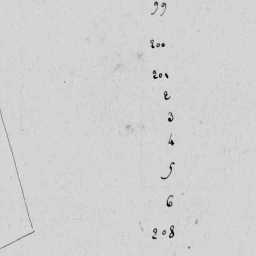 99
200
201
2
3
4
5
6
208